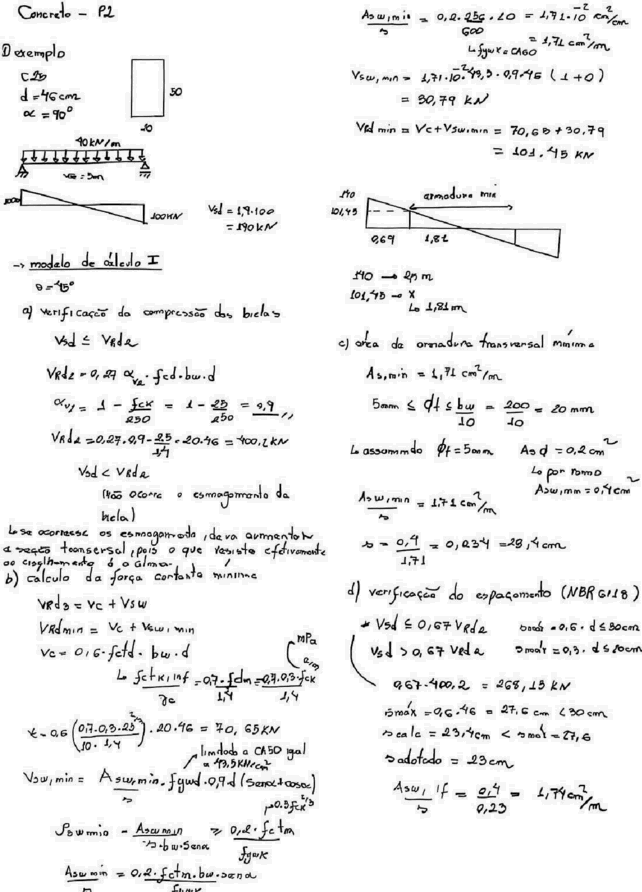 Concreto - P2
1) exemplo
C25
d = 46 cm
α = 90°
50
20
40 kN/m
= 5m
100
100 KN
Vsd = 1,4.100
= 140 KN
→ modelo de cálculo I
θ = 45°
a) verificação da compressão das bielas
Vsd ≤ VRd2
VRd2 = 0,27 αv2 . fcd . bw . d
αv2 = 1 - fck/250 = 1 - 25/250 = 0,9
VRd2 = 0,27.0,9.25/1,4 . 20.46 = 400,2 KN
Vsd < VRd2
(não ocorre o esmagamento da
biela)
↳ se ocorresse os esmagamento, deva aumentar
a seção transversal, pois o que resiste efetivamente
ao cisalhamento é a alma.
b) calculo da força cortante mínima
VRd3 = Vc + Vsw
VRdmin = Vc + Vsw, min
Vc = 0,6 . fctd . bw . d
MPa
↳ fctk,inf/γc = 0,7.fctm/1,4 = 0,7.0,3.fck^2/3/1,4
Vc = 0,6 (0,7.0,3.25^2/3/10.1,4) . 20.46 = 70,65 KN
limitado a CA50 igal
a 43,5 KN/cm²
Vsw,min = Asw,min/s . fywd . 0,9 d (senα + cosα)
0.3 fck^2/3
ρsw min = Asw min/s.bw.senα ≥ 0,2 . fctm/fywk
Asw min/s = 0,2 . fctm . bw . senα/fywk
Asw,min/s = 0,2.256.20/600 = 1,71.10^-2 cm²/cm
= 1,71 cm²/m
↳ fywk = CA60
Vsw,min = 1,71.10^-2.43,5.0,9.46 (1+0)
= 30,79 KN
VRd min = Vc + Vsw,min = 70,65 + 30,79
= 101,45 KN
140
101,45
armadura min
0,69
1,81
140 → 2,5 m
101,45 → x
↳ 1,81 m
c) área de armadura transversal mínima
As,min = 1,71 cm²/m
5mm ≤ ϕt ≤ bw/10 = 200/10 = 20 mm
↳ assumindo ϕt = 5mm Asϕ = 0,2 cm²
↳ por ramo
Asw,min = 0,4 cm²
Asw,min/s = 1,71 cm²/m
s = 0,4/1,71 = 0,234 = 23,4 cm
d) verificação do espaçamento (NBR 6118)
* Vsd ≤ 0,67 VRd2 smáx = 0,6 . d ≤ 30cm
Vsd > 0,67 VRd2 smáx = 0,3 . d ≤ 20cm
0,67.400,2 = 268,13 KN
smáx = 0,6.46 = 27,6 cm < 30 cm
s calc = 23,4cm < smáx = 27,6
s adotado = 23cm
Asw, if/s = 0,4/0,23 = 1,74 cm²/m